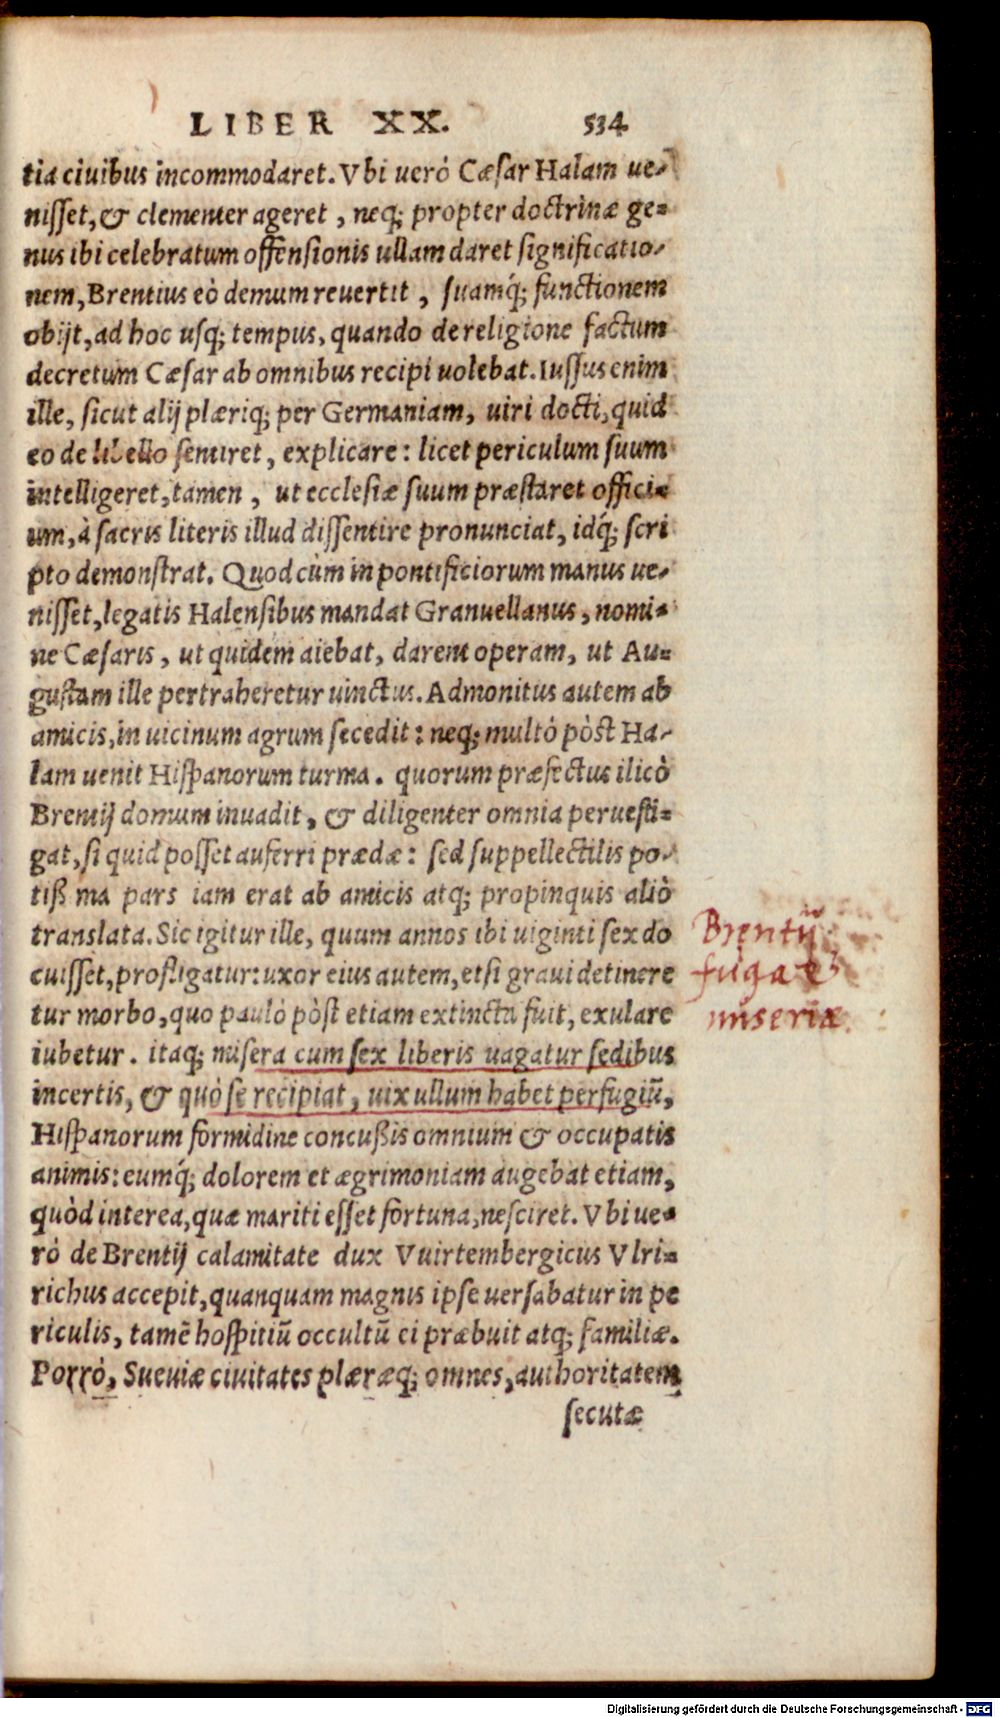 LIBER XX. 534
tia ciuibus incommodaret. Vbi uerò Cæsar Halam ue-
nisset, & clementer ageret, neq; propter doctrinæ ge-
nus ibi celebratum offensionis ullam daret significatio-
nem, Brentius eò demum reuertit, suamq́; functionem
obijt, ad hoc usq; tempus, quando de religione factum
decretum Cæsar ab omnibus recipi uolebat. Iussus enim
ille, sicut alij plæriq; per Germaniam, uiri docti, quid
eo de libello sentiret, explicare: licet periculum suum
intelligeret, tamen, ut ecclesiæ suum præstaret offici-
um, à sacris literis illud dissentire pronunciat, idq́; scri
pto demonstrat. Quod cùm in pontificiorum manus ue-
nisset, legatis Halensibus mandat Granuellanus, nomi-
ne Cæsaris, ut quidem aiebat, darent operam, ut Au-
gustam ille pertraheretur uinctus. Admonitus autem ab
amicis, in uicinum agrum secedit: neq; multò pòst Ha-
lam uenit Hispanorum turma. quorum præfectus ilicò
Brentij domum inuadit, & diligenter omnia peruesti-
gat, si quid posset auferri prædæ: sed suppellectilis po-
tiß ma pars iam erat ab amicis atq; propinquis aliò
translata. Sic igitur ille, quum annos ibi uiginti sex do
cuisset, profligatur: uxor eius autem, etsi graui detinere
tur morbo, quo paulò pòst etiam extincta fuit, exulare
iubetur. itaq; misera cum sex liberis uagatur sedibus
incertis, & quò se recipiat, uix ullum habet perfugiũ,
Hispanorum formidine concußis omnium & occupatis
animis: eumq́; dolorem et ægrimoniam augebat etiam,
quòd interea, quæ mariti esset fortuna, nesciret. Vbi ue-
rò de Brentij calamitate dux Vuirtembergicus Vlri-
richus accepit, quanquam magnis ipse uersabatur in pe
riculis, tamẽ hospitiũ occultũ ei præbuit atq; familiæ.
Porrò, Sueuiæ ciuitates plæræq; omnes, authoritatem
secutæ
Brentij
fuga et
miseriæ.
Digitalisierung gefördert durch die Deutsche Forschungsgemeinschaft - DFG